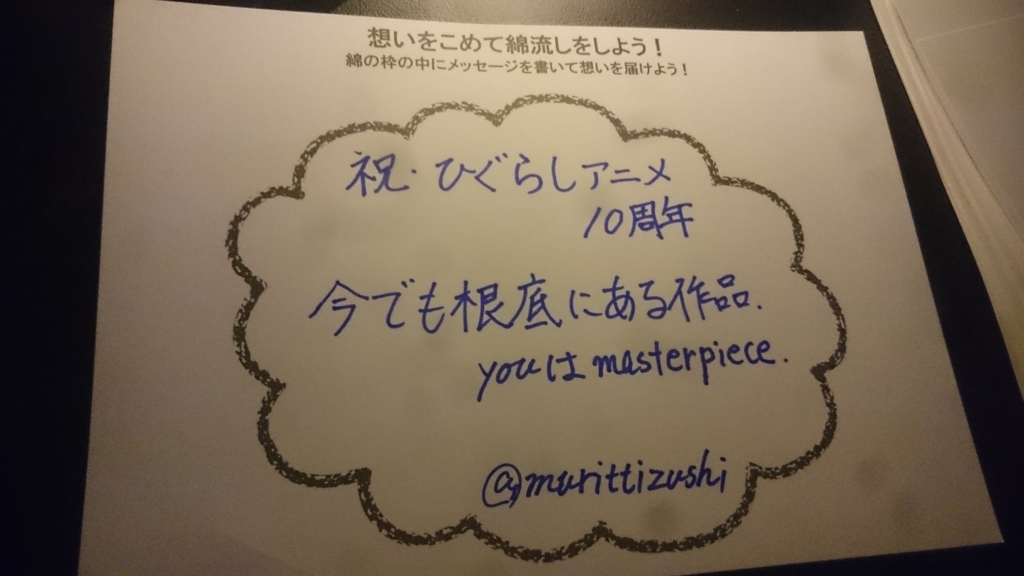 想いをこめて綿流しをしよう！
綿の枠の中にメッセージを書いて想いを届けよう！
祝・ひぐらしアニメ
10周年
今でも根底にある作品.
youは masterpiece.
@murittizushi